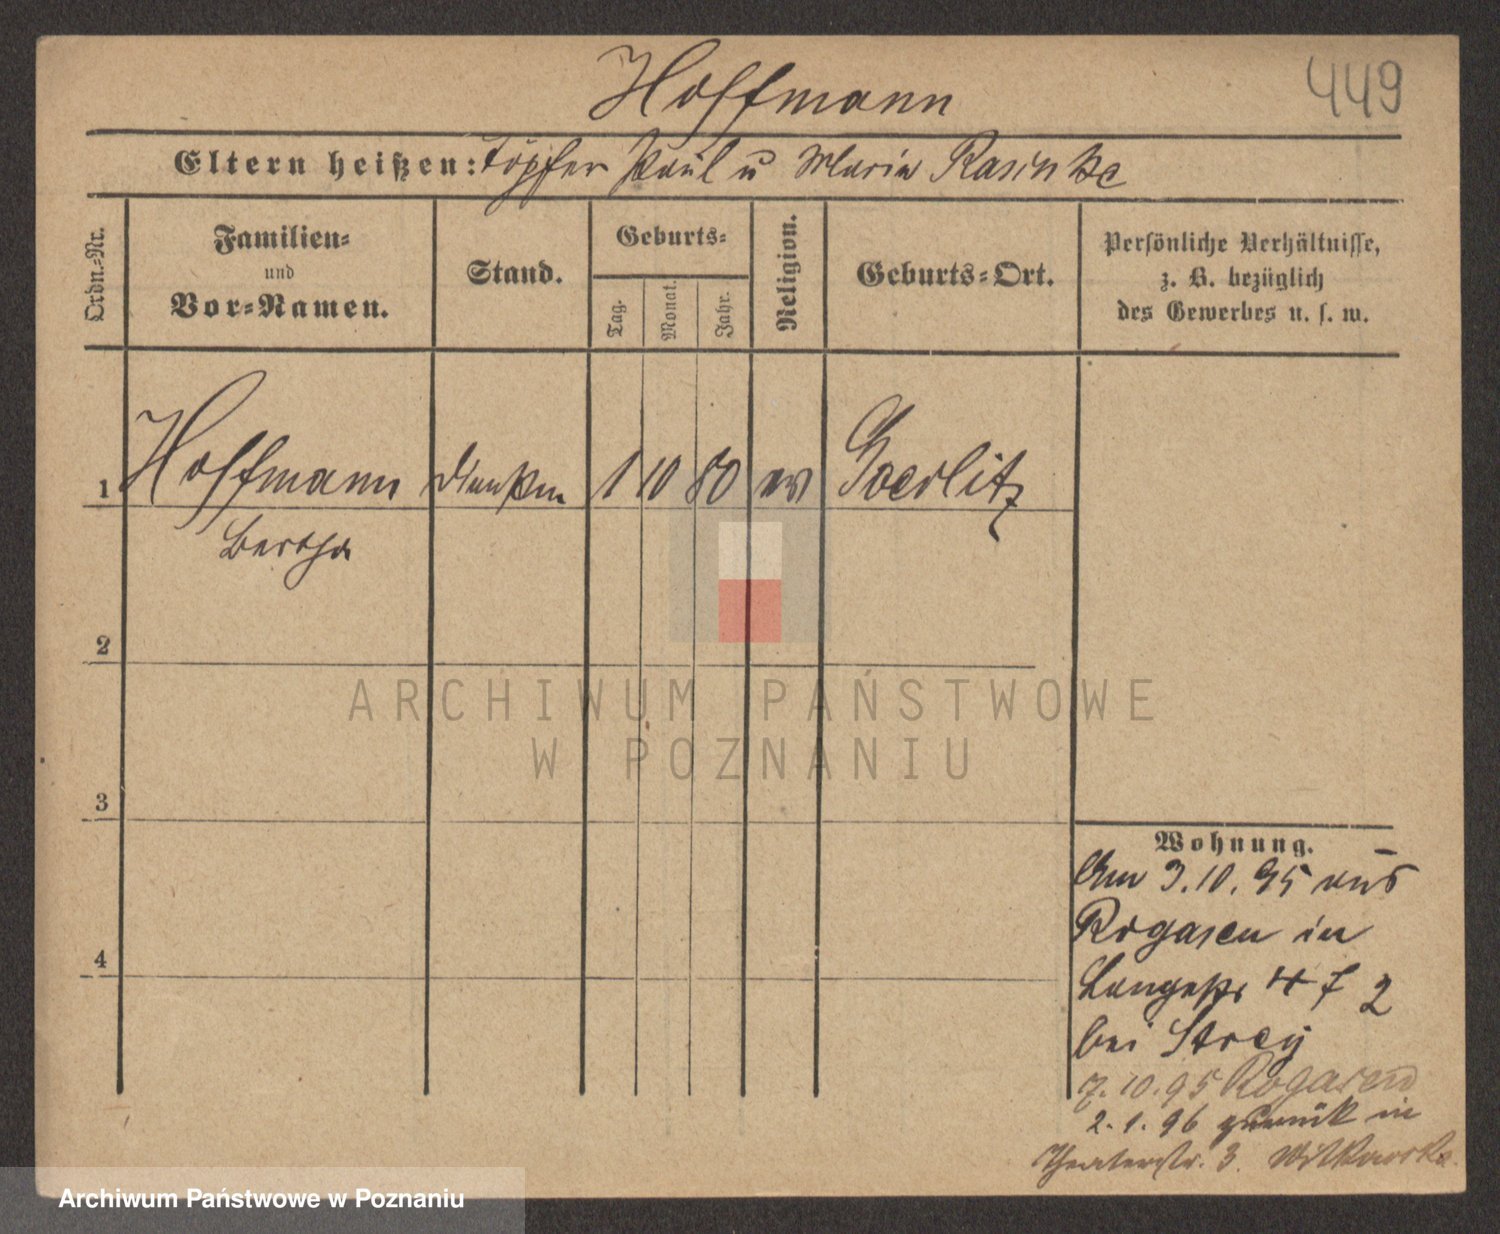 Hoffmann
449
Eltern heißen: Töpfer Paul u Maria Rasinske
Ordn.-Nr.
Familien-
und
Vor-Namen.
Stand.
Geburts-
Tag.
Monat.
Jahr.
Religion.
Geburts-Ort.
Persönliche Verhältnisse,
z. B. bezüglich
des Gewerbes u. s. w.
1 Hoffmann 1 10 80 ev Goerlitz
Bertha
2
3
4
Wohnung.
Am 3.10.95 aus
Rogasen in
Langestr 4 2
bei
7.10.95 Rogasen
2.1.96 zurück in
Theaterstr. 3. Witkowska
ARCHIWUM PAŃSTWOWE
W POZNANIU
Archiwum Państwowe w Poznaniu